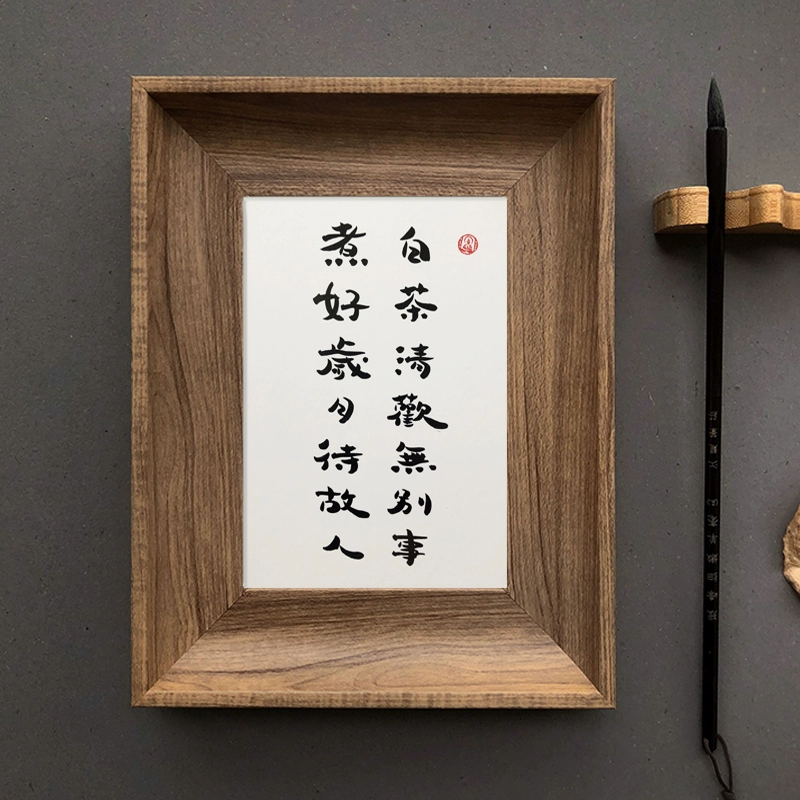 白茶清歡無別事
煮好歲月待故人